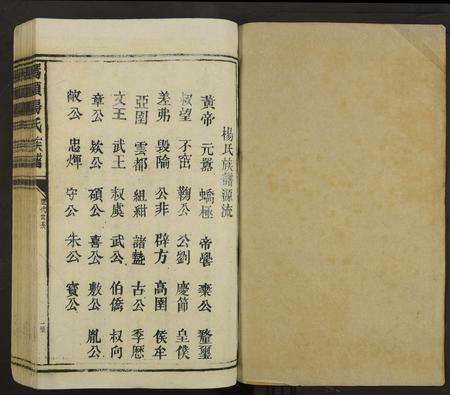 楊氏族譜源流
黃帝 元囂 蟜極 帝嚳 棄公 螯璽
叔望 不窋 鞠公 公劉 慶節 皇僕
差弗 毀隃 公非 辟方 高圉 侯牟
亞圉 雲都 組紺 諸盩 古公 季歷
文王 武王 叔虞 武公 伯僑 叔向
章公 欸公 碩公 喜公 敷公 胤公
敞公 忠煇 守公 朱公 寶公
楊氏族譜